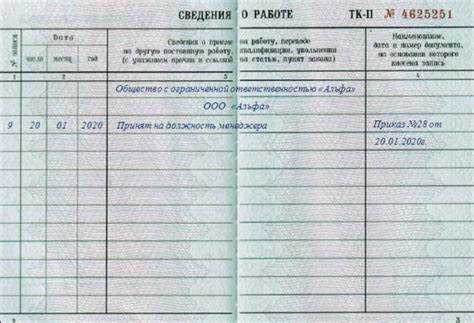 СВЕДЕНИЯ О РАБОТЕ ТК-II № 4625251
№ записи
Дата
число месяц год
Сведения о приеме на работу, переводе
на другую постоянную работу, квалификации, увольнении
(с указанием причин и ссылкой на статью, пункт закона)
Наименование,
дата и номер документа,
на основании которого
внесена запись
1 2 3 4
Общество с ограниченной ответственностью «Альфа»
ООО «Альфа»
9 20 01 2020 Принят на должность менеджера Приказ №28 от
20.01.2020г.
2 3